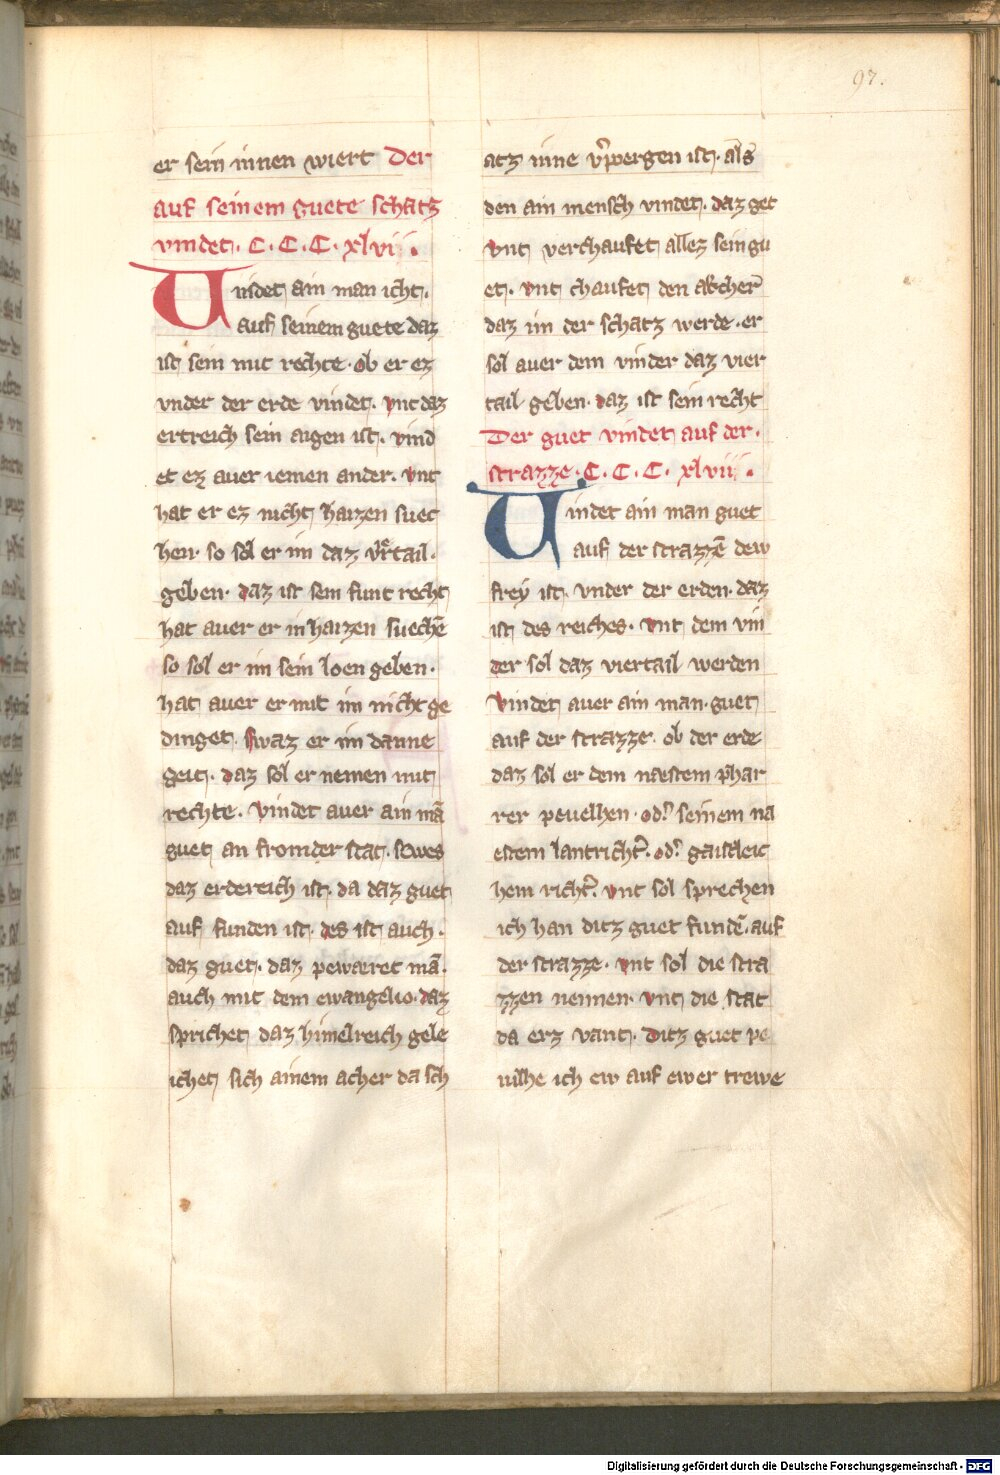 97.
er sein innen wiert Der
auf seinem guete schatz
vindet. C. C. C. xlvii.
Uindet ain man icht.
auf seinem guete daz
ist sein mit rechte. ob er ez
vnder der erde vindet. vnt daz
ertreich sein aigen ist. vind
et ez auer iemen ander. vnt
hat er ez nicht haizen suec
hen. so sol er im daz
geben. daz ist sein funt recht
hat auer er in haizen suechē
so sol er im sein loen geben.
hat auer er mit im nicht ge
dinget. swaz er im danne
geit. daz sol er nemen mit
rechte. vindet auer ain mā
guet an fromder stat. swes
daz erdereich ist. da daz guet
auf funden ist. des ist auch.
daz guet. daz pewaeret mā.
auch mit dem ewangelio. daz
sprichet daz himelreich gele
ichet sich ainem acher da sch
atz inne v̄porgen ist. als
den ain mensch vindet. daz get
vnt verchaufet allez sein gu
et. vnt chaufet den akcher
daz im der schatz werde. er
sol auer dem vinder daz vier
tail geben. daz ist sein recht
Der guet vindet auf der.
strazze. C. C. C. xlviii.
Uindet ain man guet
auf der strazzē dew
frey ist. vnder der erden. daz
ist des reiches. vnt dem vin
der sol daz viertail werden
vindet auer ain man. guet
auf der strazze. ob der erde
daz sol er dem naestem phar
rer peuelhen. od' seinem na
estem lantricht'. od' gaistleic
hem richt'. vnt sol sprechen
ich han ditz guet fundē. auf
der strazze. vnt sol die stra
zzen nennen. vnt die stat
da erz vant. Ditz guet pe
uilhe ich ew auf ewer trewe
Digitalisierung gefördert durch die Deutsche Forschungsgemeinschaft - DFG